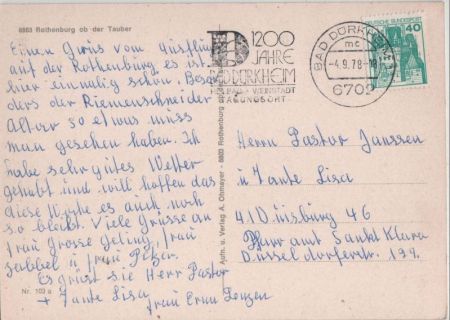 8803 Rothenburg ob der Tauber
Einen Gruß vom Ausflug
auf der Rothenburg es ist
hier einmalig schön. Beson
ders der Riemenschneider
Altar so etwas muss
man gesehen haben. Ich
habe sehr gutes Wetter
gehabt und will hoffen das
diese Woche es auch noch
so bleibt. Viele Grüsse an
frau Grosse Geling, frau
Sabbel u frau Pelzer.
Es grüst sie Herr Pastor
+ Tante Lisa
frau Erna
Nr. 103 a
Aufn. u. Verlag A. Ohmayer - 8803 Rothenburg
1200
JAHRE
BAD DÜRKHEIM
HEILBAD · WEINSTADT
TAGUNGSORT
BAD DÜRKHEIM
mc
-4.9.78-18
6702
DEUTSCHE BUNDESPOST
40
Herrn Pastor Janssen
u Tante Lisa
41 Duisburg 46
Pfarr amt Sankt Klara
Düsseldorferstr.